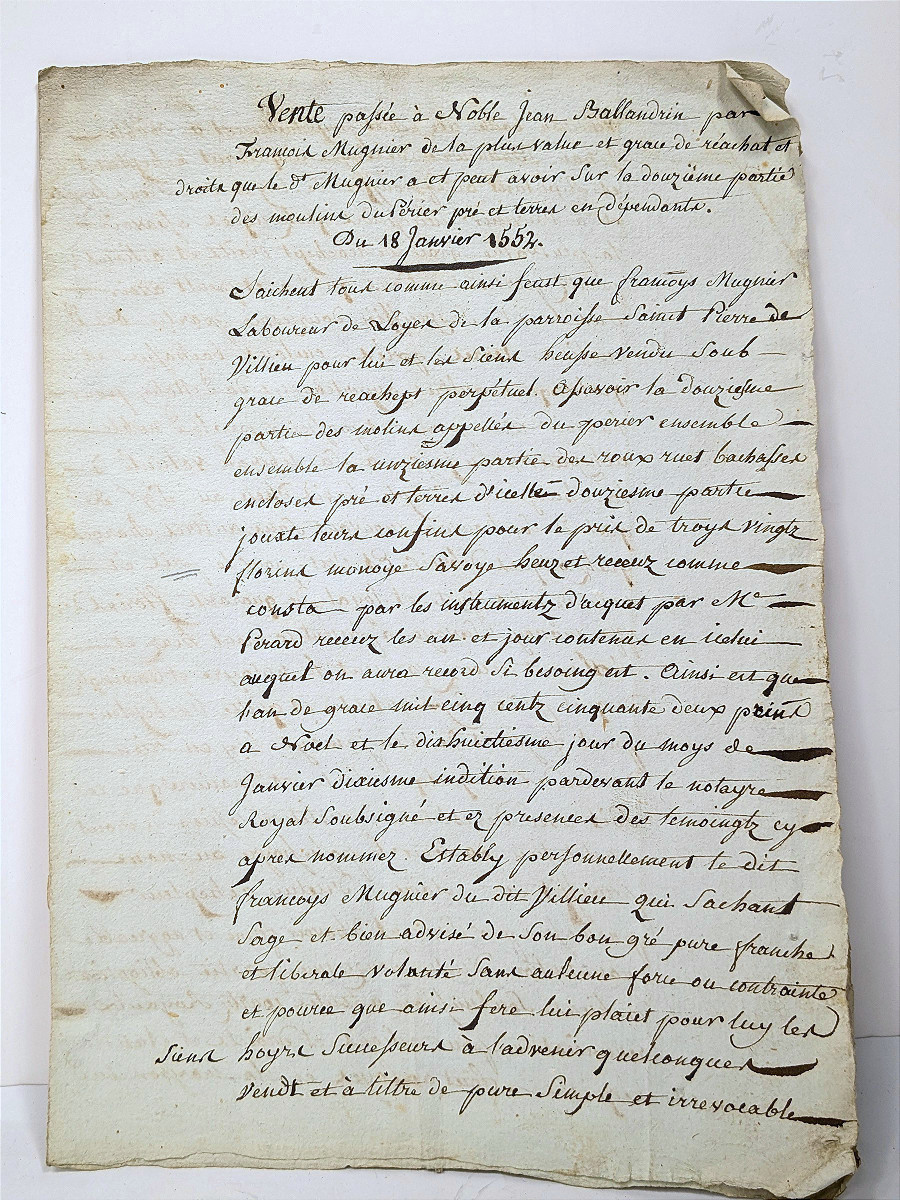 Vente passée à Noble Jean Ballandrin par
François Mugnier de la plus value et grace de réachat et
droits que le dt Mugnier a et peut avoir sur la douzième partie
des moulins du Périer pré et terres en dépendants.
Du 18 Janvier 1552.
Saichent tous comme ainsi feust que françoys Mugnier
Laboureur de Loyes de la parroisse Saint Pierre de
Villieu pour lui et les siens heusse vendu soub
grace de reachept perpétuel. Asavoir la douziesme
partie des molins appellés du perier ensemble
ensemble la unziesme partie des roux rues bachasses
encloses pré et terres d'icelle douziesme partie
jouxte leurs confins pour le pris de troys vingtz
florins monoye Savoye heuz et receuz comme
consta par les instrumentz d'acquet par Me
Perard receuz les an et jour contenus en icelui
auquel on aura record si besoing est. Ainsi est que
lan de grace mil cinq centz cinquante deux prins
a Noel et le dixhuictiesme jour du moys de
Janvier dixiesme indition pardevant le notayre
Royal soubsigné et ez presences des temoingtz cy
apres nommez. Estably personnellement le dit
françoys Mugnier du dit Villieu qui sachant
sage et bien advisé de son bon gré pure franche
et liberale volonté sans aulcune force ou contrainte
et pource que ainsi fere lui plaict pour luy les
siens hoyrs successeurs à l'advenir quelconques
vendt et à tiltre de pure simple et irrevocable